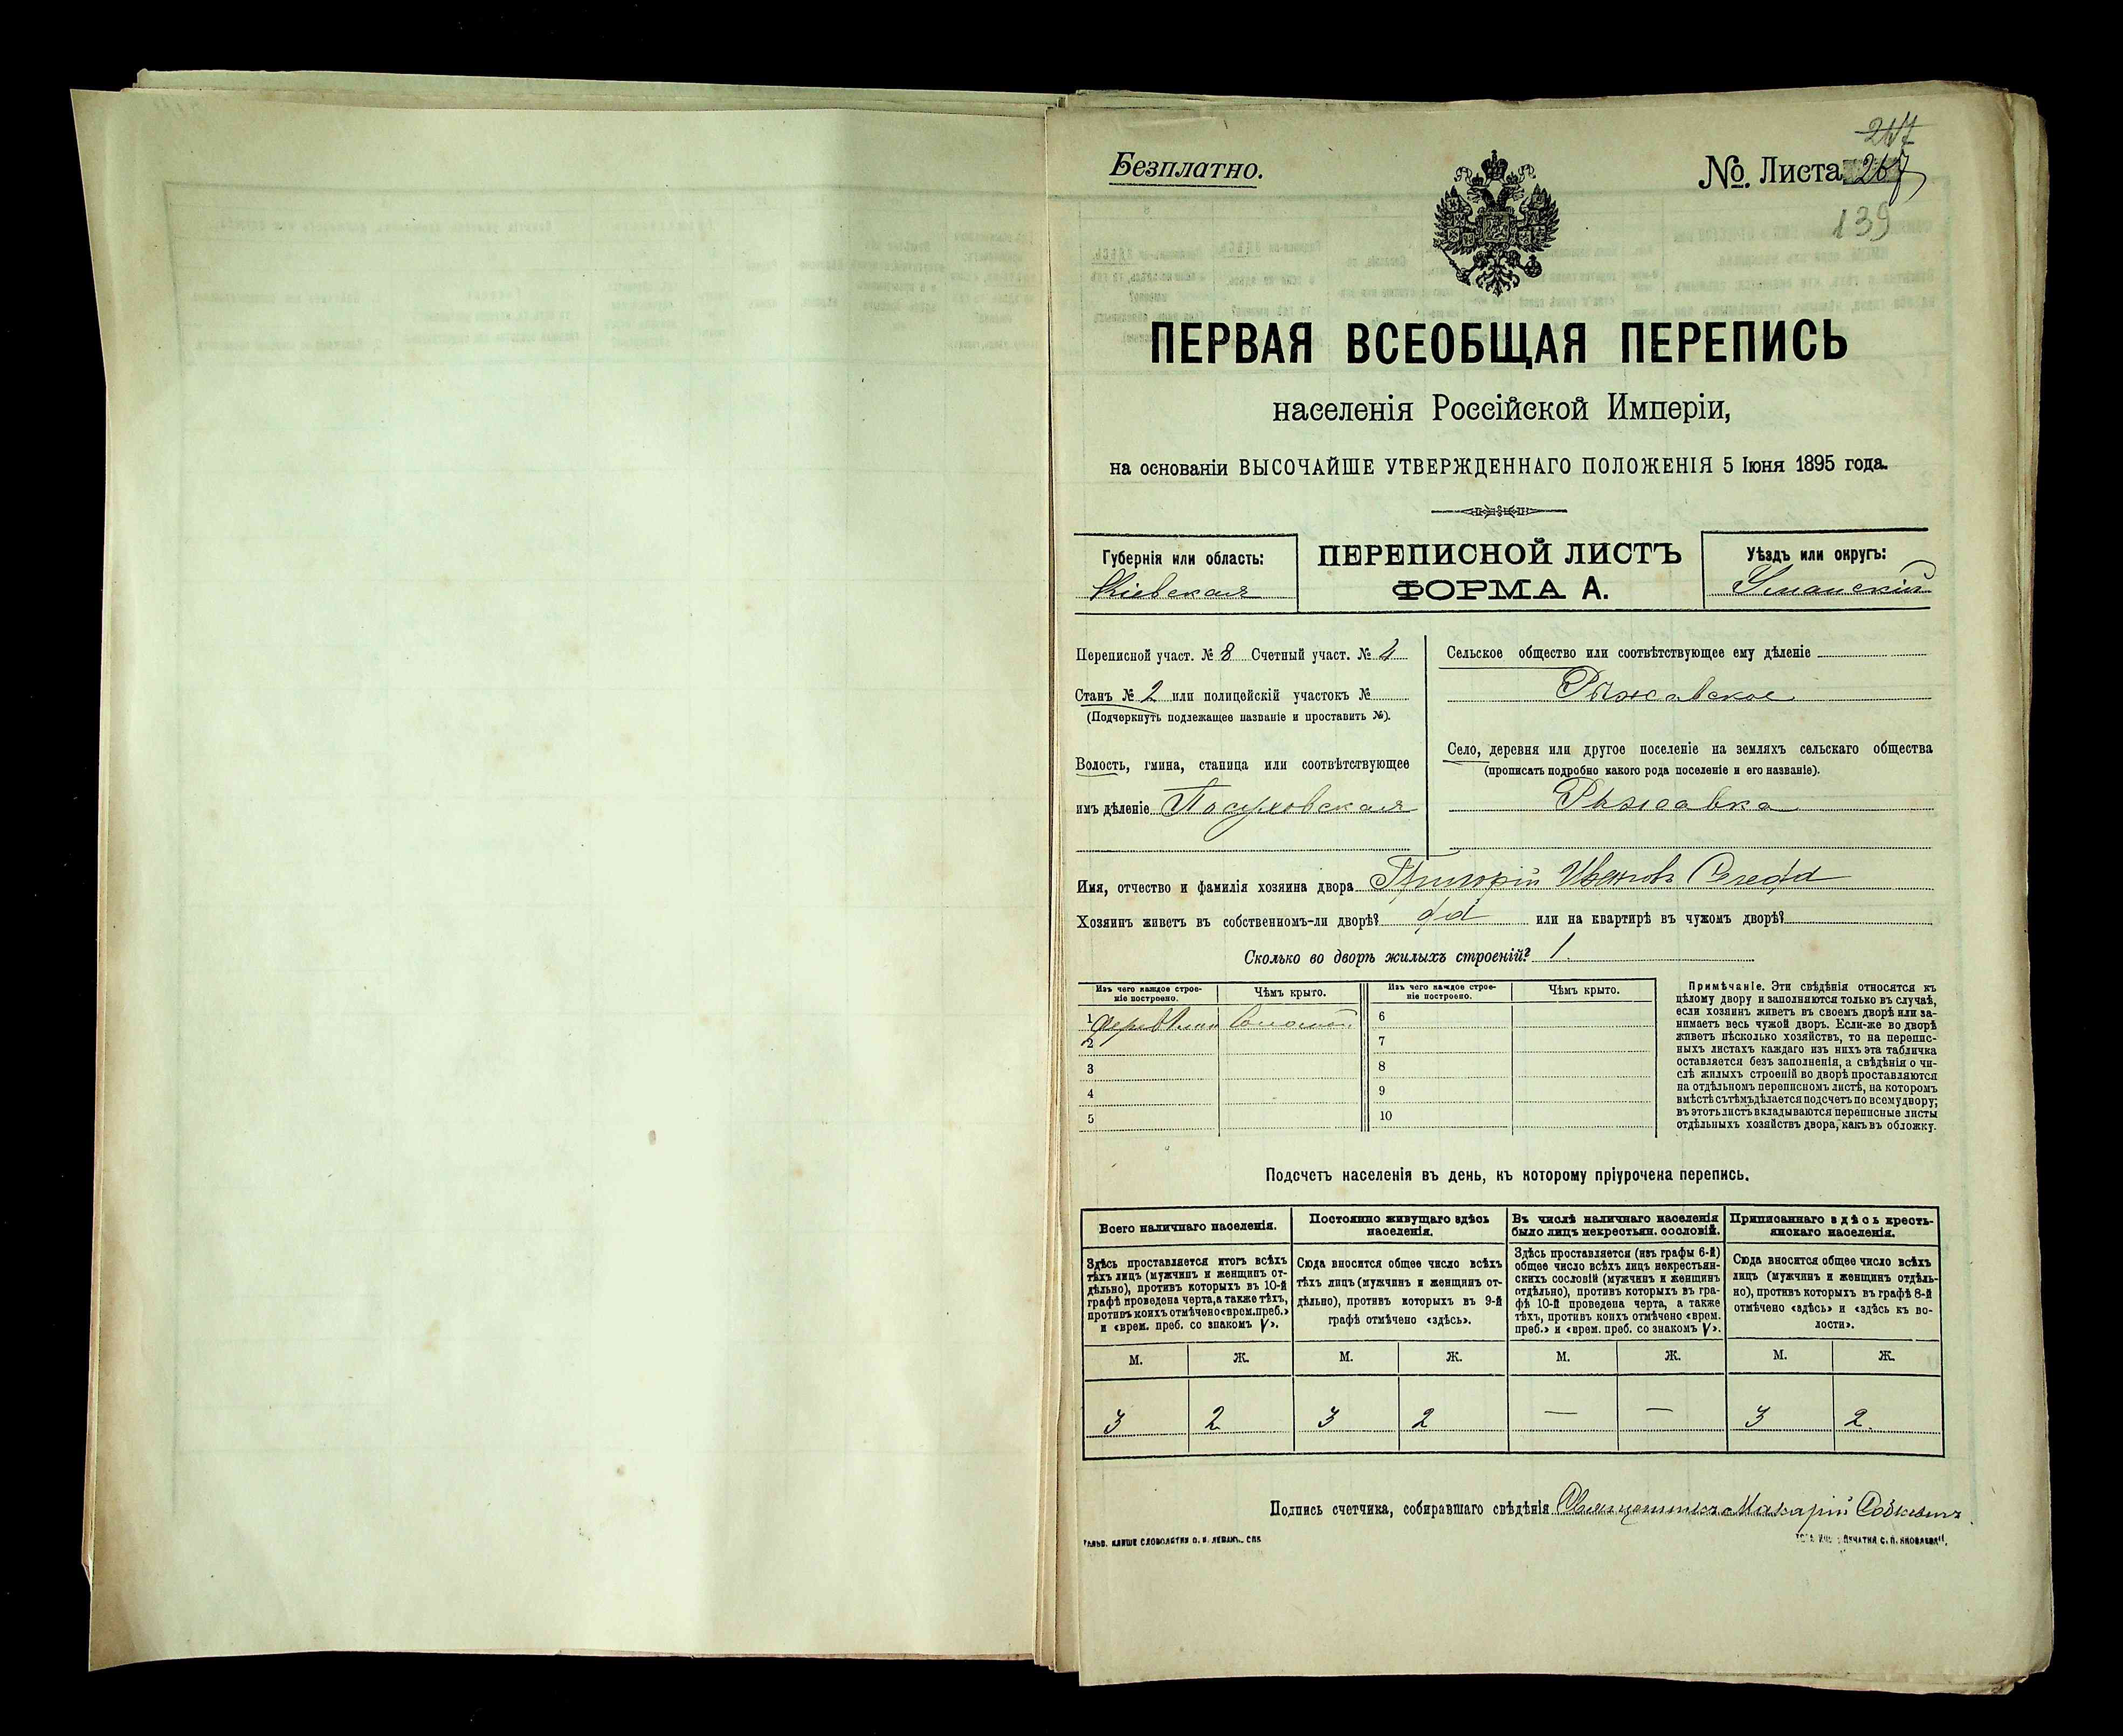 Безплатно.
№. Листа 267
267
139
ПЕРВАЯ ВСЕОБЩАЯ ПЕРЕПИСЬ
населенія Россійской Имперіи,
на основаніи ВЫСОЧАЙШЕ УТВЕРЖДЕННАГО ПОЛОЖЕНІЯ 5 Іюня 1895 года.
Губернія или область:
Кіевская
ПЕРЕПИСНОЙ ЛИСТЪ
ФОРМА А.
Уѣздъ или округъ:
Уманскій
Переписной участ. № 8 Счетный участ. № 4
Станъ № 2 или полицейскій участокъ №
(Подчеркнуть подлежащее названіе и проставить №).
Волость, гмина, станица или соотвѣтствующее
имъ дѣленіе
Сельское общество или соотвѣтствующее ему дѣленіе
Рыжавское
Село, деревня или другое поселеніе на земляхъ сельскаго общества
(прописать подробно какого рода поселеніе и его названіе).
Рыжавка
Имя, отчество и фамилія хозяина двора Григорій Ивановъ
Хозяинъ живетъ въ собственномъ-ли дворѣ? да или на квартирѣ въ чужомъ дворѣ?
Сколько во дворѣ жилыхъ строеній? 1.
Изъ чего каждое строе-
ніе построено.
Чѣмъ крыто.
Изъ чего каждое строе-
ніе построено.
Чѣмъ крыто.
1 6
2 7
3 8
4 9
5 10
Примѣчаніе. Эти свѣдѣнія относятся къ
цѣлому двору и заполняются только въ случаѣ,
если хозяинъ живетъ въ своемъ дворѣ или за-
нимаетъ весь чужой дворъ. Если-же во дворѣ
живетъ нѣсколько хозяйствъ, то на перепис-
ныхъ листахъ каждаго изъ нихъ эта табличка
оставляется безъ заполненія, а свѣдѣнія о чи-
слѣ жилыхъ строеній во дворѣ проставляются
на отдѣльномъ переписномъ листѣ, на которомъ
вмѣстѣ съ тѣмъ дѣлается подсчетъ по всему двору;
въ этотъ листъ вкладываются переписные листы
отдѣльныхъ хозяйствъ двора, какъ въ обложку.
Подсчетъ населенія въ день, къ которому пріурочена перепись.
Всего наличнаго населенія.
Здѣсь проставляется итогъ всѣхъ
тѣхъ лицъ (мужчинъ и женщинъ от-
дѣльно), противъ которыхъ въ 10-й
графѣ проведена черта, а также тѣхъ,
противъ коихъ отмѣчено «врем. преб.»
и «врем. преб. со знакомъ V».
Постоянно живущаго здѣсь
населенія.
Сюда вносится общее число всѣхъ
тѣхъ лицъ (мужчинъ и женщинъ от-
дѣльно), противъ которыхъ въ 9-й
графѣ отмѣчено «здѣсь».
Въ числѣ наличнаго населенія
было лицъ некрестьян. сословій.
Здѣсь проставляется (изъ графы 6-й)
общее число всѣхъ лицъ некрестьян-
скихъ сословій (мужчинъ и женщинъ
отдѣльно), противъ которыхъ въ гра-
фѣ 10-й проведена черта, а также
тѣхъ, противъ коихъ отмѣчено «врем.
преб.» и «врем. преб. со знакомъ V».
Приписаннаго здѣсь кресть-
янскаго населенія.
Сюда вносится общее число всѣхъ
лицъ (мужчинъ и женщинъ отдѣль-
но), противъ которыхъ въ графѣ 8-й
отмѣчено «здѣсь» и «здѣсь къ во-
лости».
М. Ж. М. Ж. М. Ж. М. Ж.
3 2 3 2 — — 3 2
Подпись счетчика, собиравшаго свѣдѣнія Священникъ Макарій